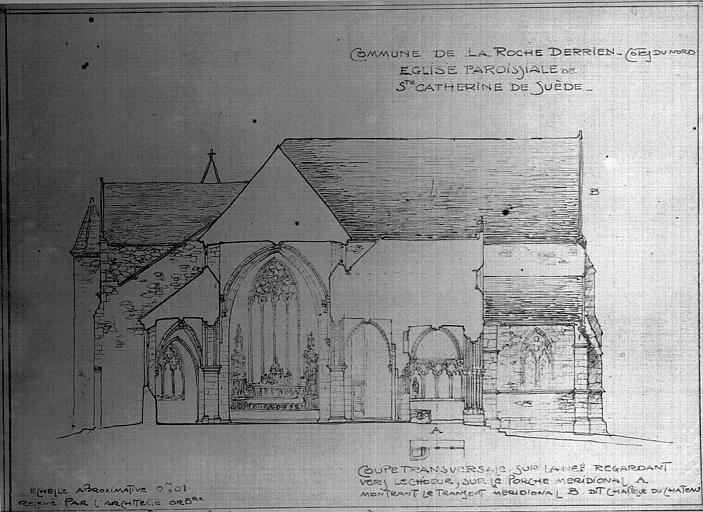 COMMUNE DE LA ROCHE DERRIEN - COTES DU NORD
EGLISE PAROISSIALE DE
STE CATHERINE DE SUÈDE -
B
A
COUPE TRANSVERSALE, SUR LA NEF REGARDANT
VERS LE CHOEUR, SUR LE PORCHE MERIDIONAL A
MONTRANT LE TRANSEPT MERIDIONAL B DIT CHAPELLE DU CHATEAU
ECHELLE APPROXIMATIVE 0m,01
PAR L'ARCHITECTE